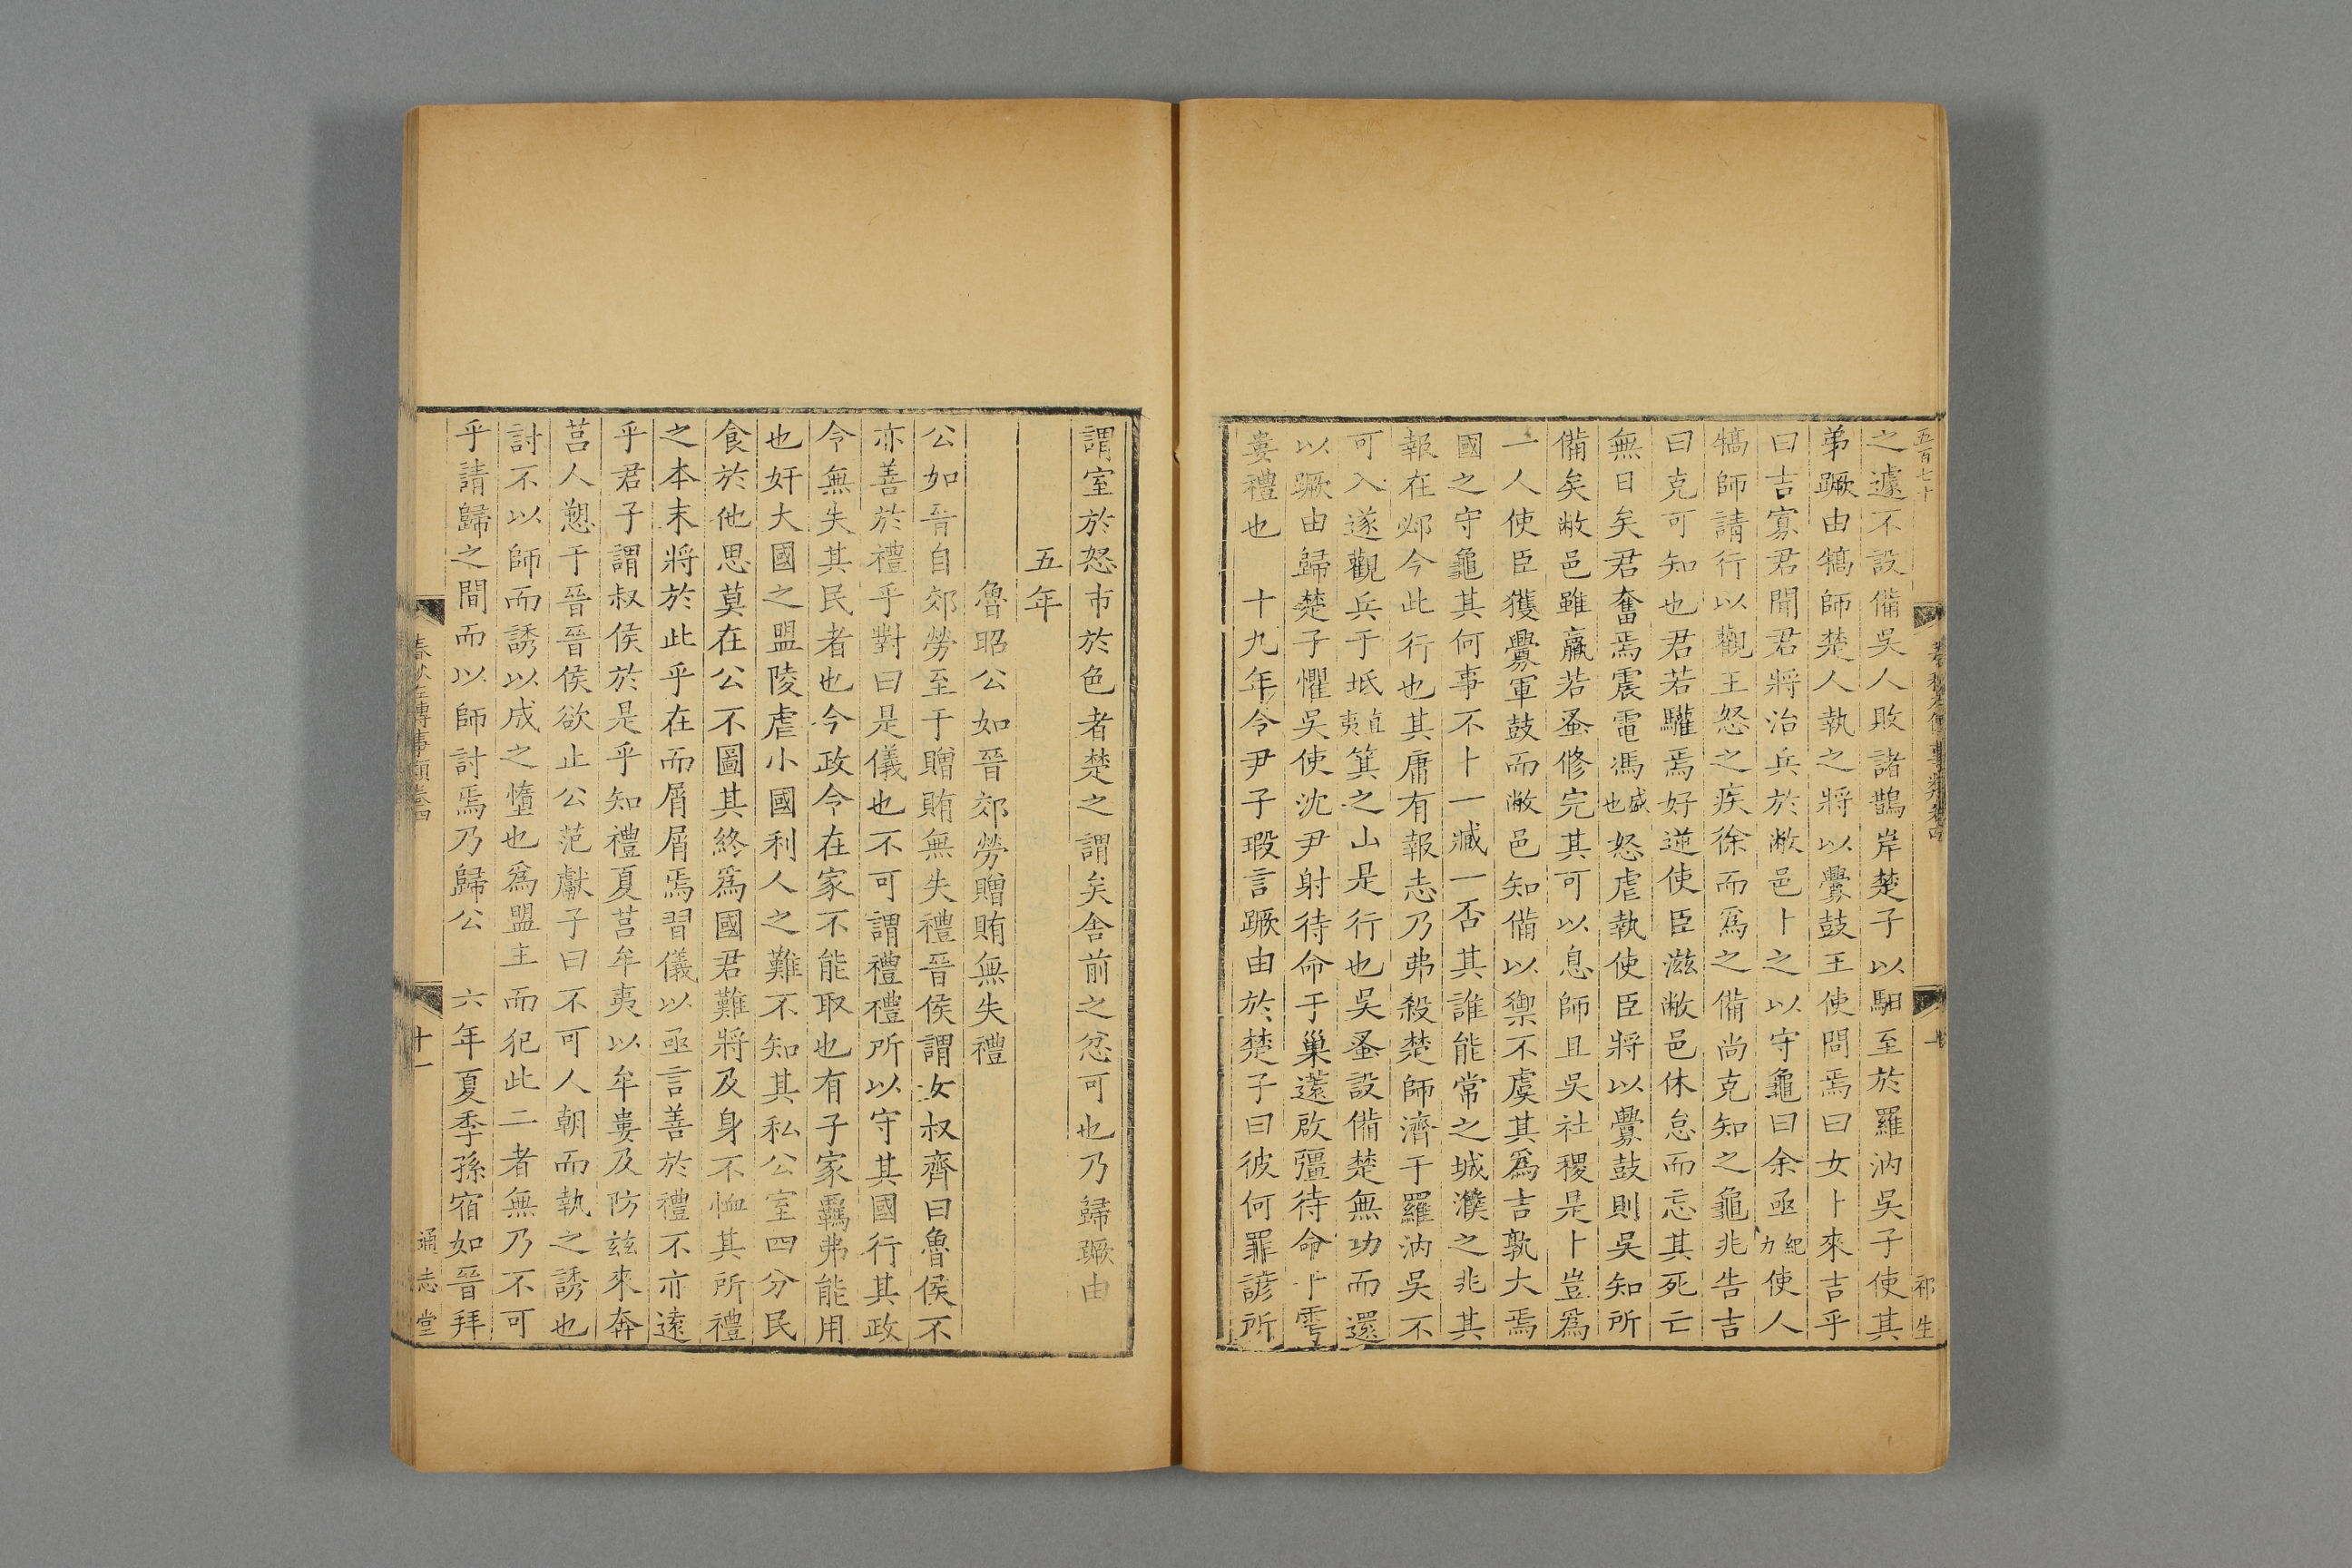 五百七十
祁生
之遽不設備吳人敗諸鵲岸楚子以馹至於羅汭吳子使其
弟蹶由犒師楚人執之將以釁鼓王使問焉曰女卜來吉乎
曰吉寡君聞君將治兵於敝邑卜之以守龜曰余亟紀力使人
犒師請行以觀王怒之疾徐而爲之備尚克知之龜兆告吉
曰克可知也君若驩焉好逆使臣滋敝邑休怠而忘其死亡
無日矣君奮焉震電馮盛也怒虐執使臣將以釁鼓則吳知所
備矣敝邑雖羸若蚤修完其可以息師且吳社稷是卜豈爲
一人使臣獲釁軍鼓而敝邑知備以禦不虞其爲吉孰大焉
國之守龜其何事不卜一臧一否其誰能常之城濮之兆其
報在邲今此行也其庸有報志乃弗殺楚師濟于羅汭吳不
可入遂觀兵于坻直夷箕之山是行也吳蚤設備楚無功而還
以蹶由歸楚子懼吳使沈尹射待命于巢薳啟彊待命于雩
婁禮也　十九年令尹子瑕言蹶由於楚子曰彼何罪諺所
謂室於怒市於色者楚之謂矣舍前之忿可也乃歸蹶由
五年
魯昭公如晉郊勞贈賄無失禮
公如晉自郊勞至于贈賄無失禮晉侯謂女叔齊曰魯侯不
亦善於禮乎對曰是儀也不可謂禮禮所以守其國行其政
令無失其民者也今政令在家不能取也有子家羈弗能用
也奸大國之盟陵虐小國利人之難不知其私公室四分民
食於他思莫在公不圖其終爲國君難將及身不恤其所禮
之本末將於此乎在而屑屑焉習儀以亟言善於禮不亦遠
乎君子謂叔侯於是乎知禮夏莒牟夷以牟婁及防茲來奔
莒人愬于晉晉侯欲止公范獻子曰不可人朝而執之誘也
討不以師而誘以成之惰也爲盟主而犯此二者無乃不可
乎請歸之間而以師討焉乃歸公　六年夏季孫宿如晉拜
春秋左傳事類卷四
十一
通志堂